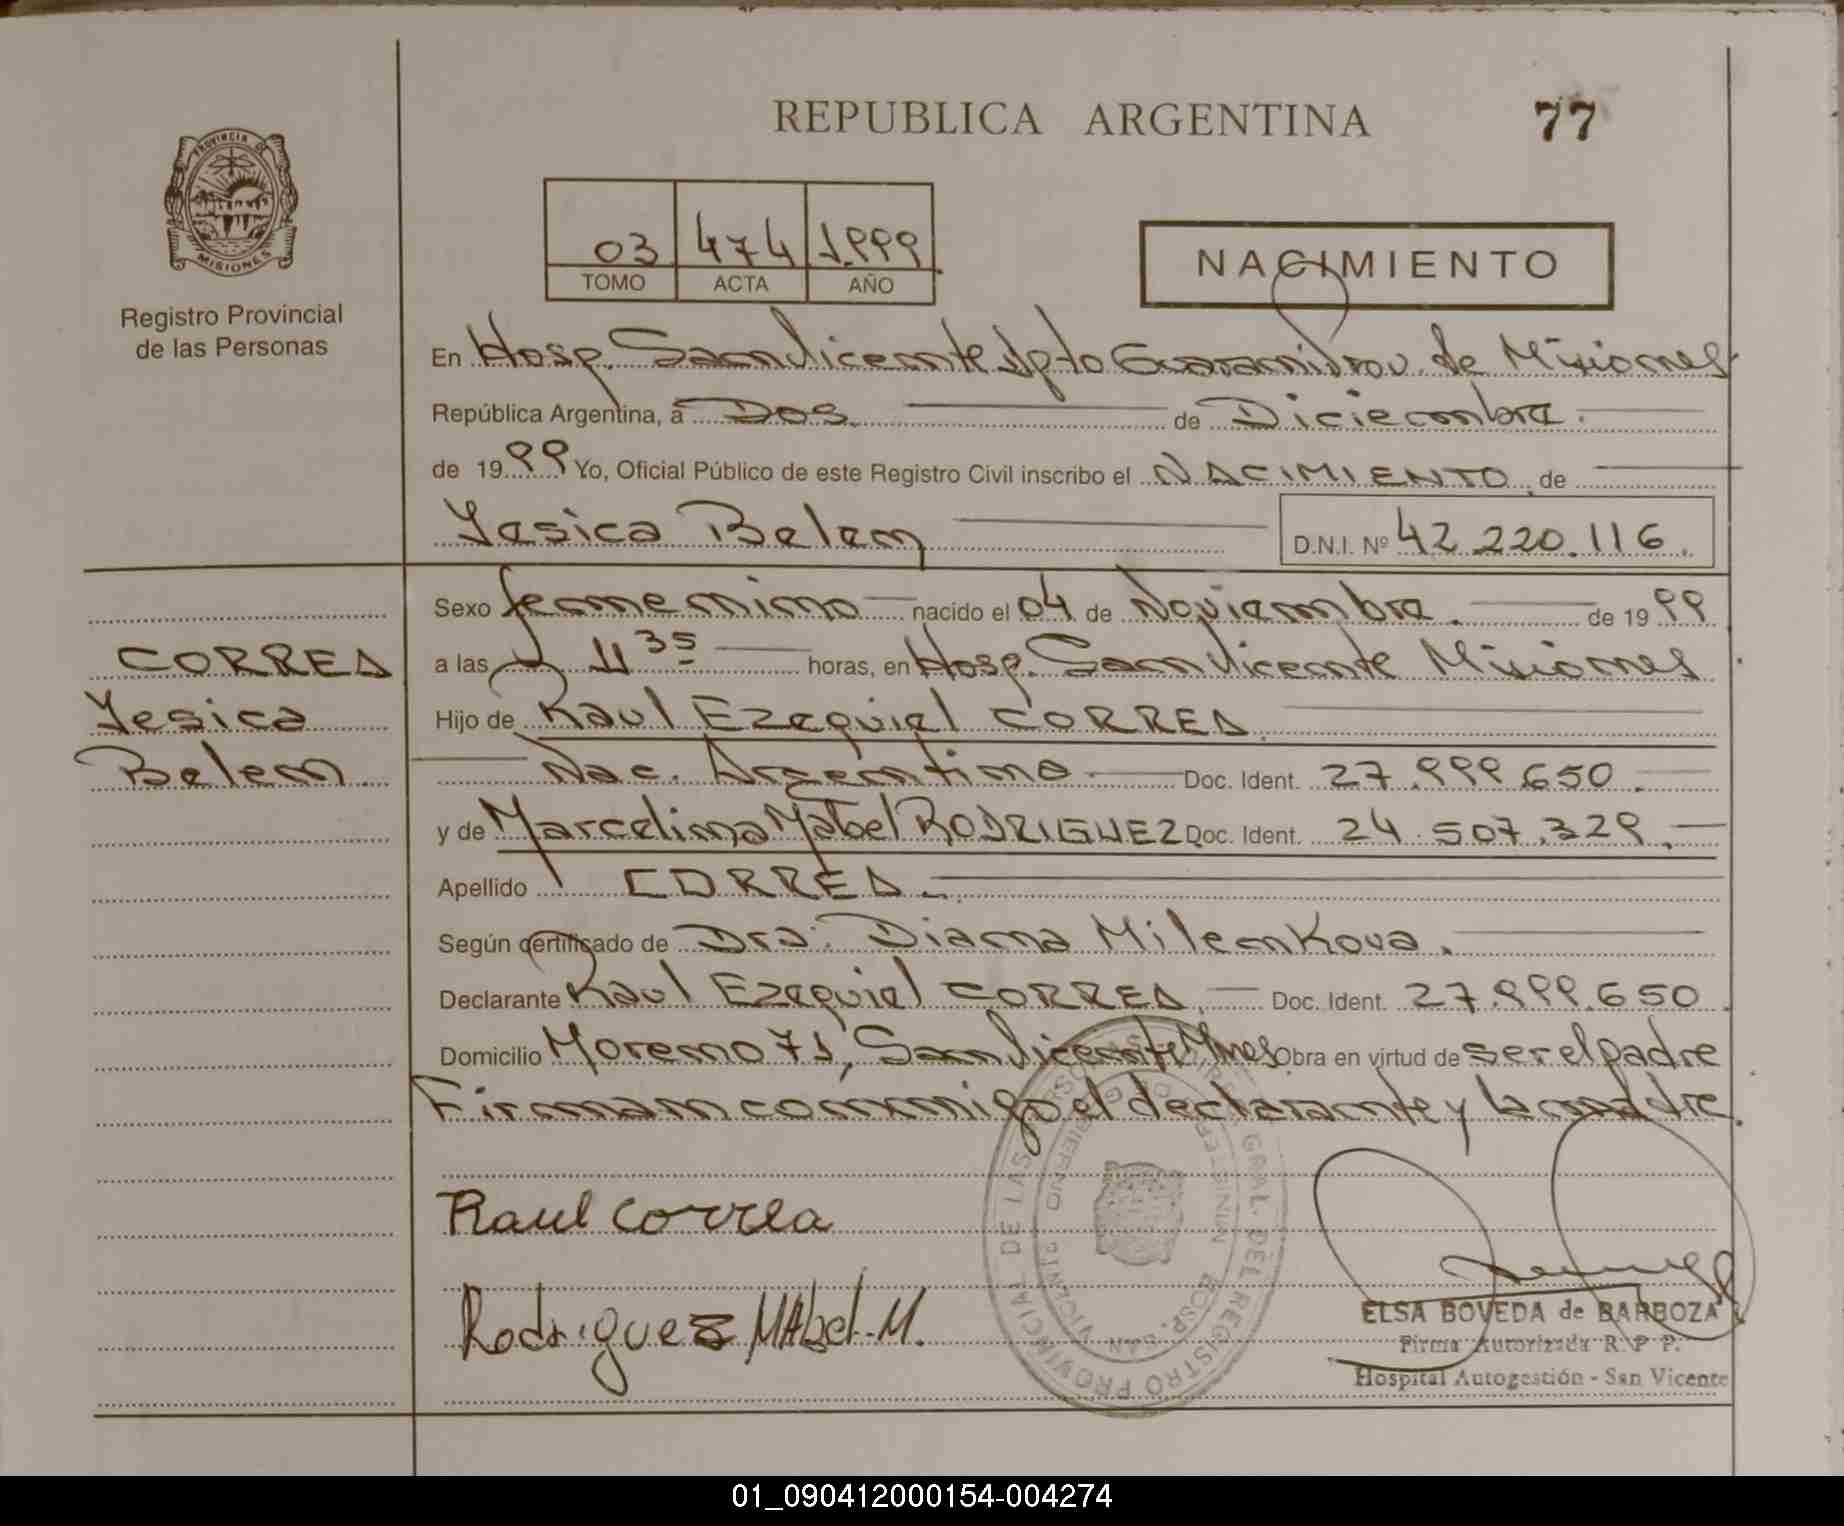 REPUBLICA ARGENTINA
77
PROVINCIA DE
MISIONES
Registro Provincial
de las Personas
03 474 1.999
TOMO ACTA AÑO
NACIMIENTO
En Hosp. San Vicente Dpto Guarani Prov. de Misiones
República Argentina, a Dos de Diciembre.
de 1999 Yo, Oficial Público de este Registro Civil inscribo el NACIMIENTO, de
Yesica Belem
D.N.I. Nº 42.220.116.
Sexo femenino nacido el 04 de Noviembre. de 1999
a las 11 35 horas, en Hosp. San Vicente Misiones
Hijo de Raul Ezequiel CORREA.
Nac. Argentina. Doc. Ident. 27.999.650.
y de Marcelina Mabel RODRIGUEZ Doc. Ident. 24.507.329.
Apellido CORREA.
Según certificado de Dra. Diana Milenkova.
Declarante Raul Ezequiel CORREA, Doc. Ident. 27.999.650.
Domicilio Moreno 71, San Vicente Mnes Obra en virtud de ser el padre
Firman conmigo el declarante y la madre.
CORREA
Yesica
Belem.
Raul Correa
Rodriguez MAbel. M.
REGISTRO PROVINCIAL DE LAS
GRAL. DEL
HOSP. SAN VICENTE
ELSA BOVEDA de BARBOZA
Firma Autorizada R. P P.
Hospital Autogestión - San Vicente
01_090412000154-004274